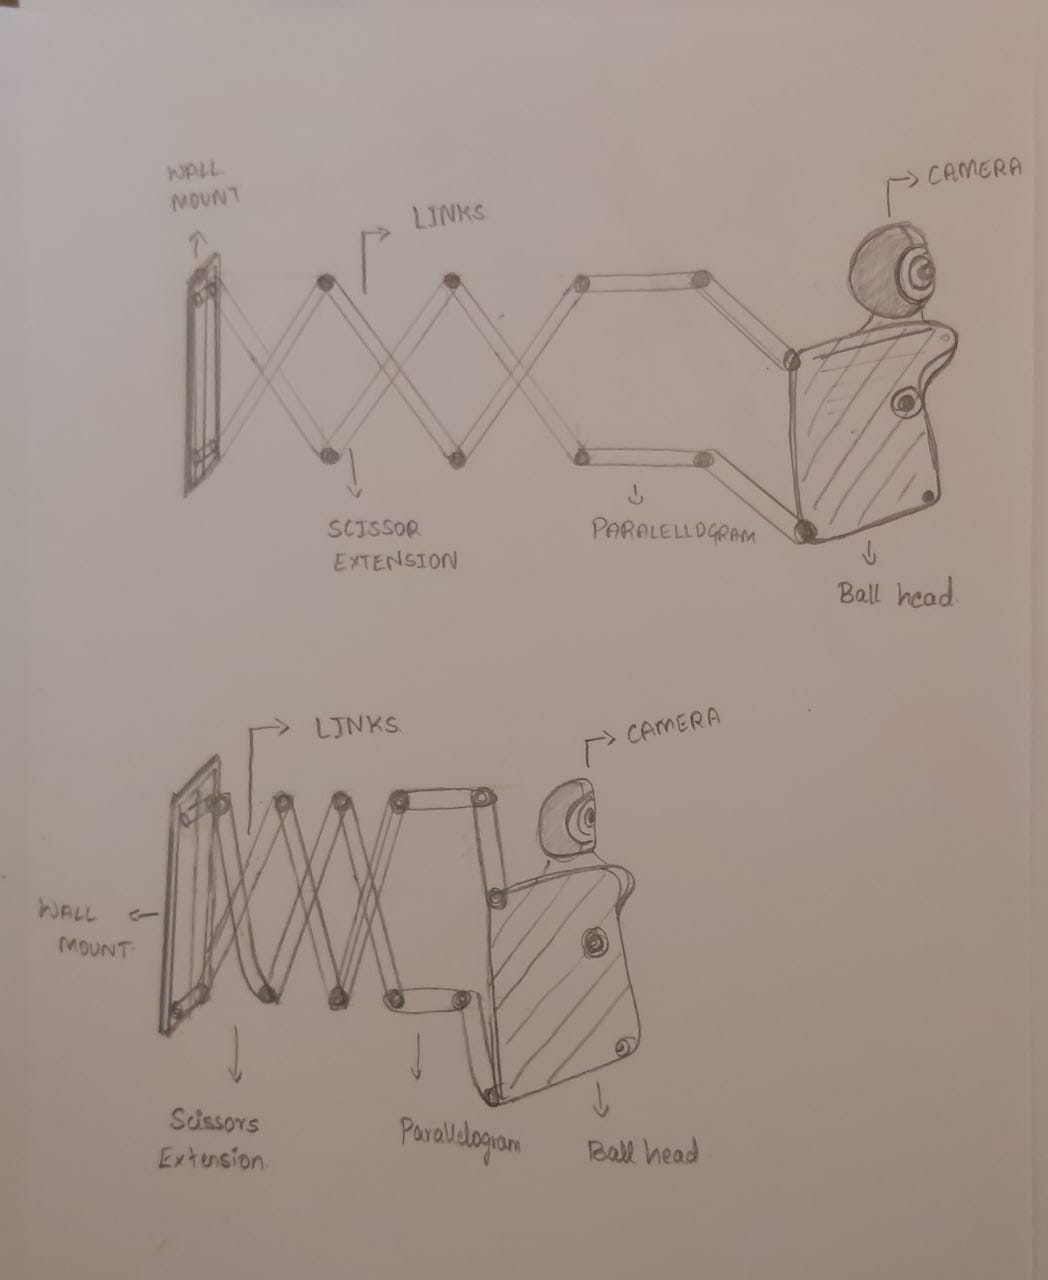 WALL
MOUNT
LINKS
CAMERA
SCISSOR
EXTENSION
PARALELLOGRAM
Ball head.
LINKS
CAMERA
WALL
MOUNT
Scissors
Extension
Parallelogram
Ball head